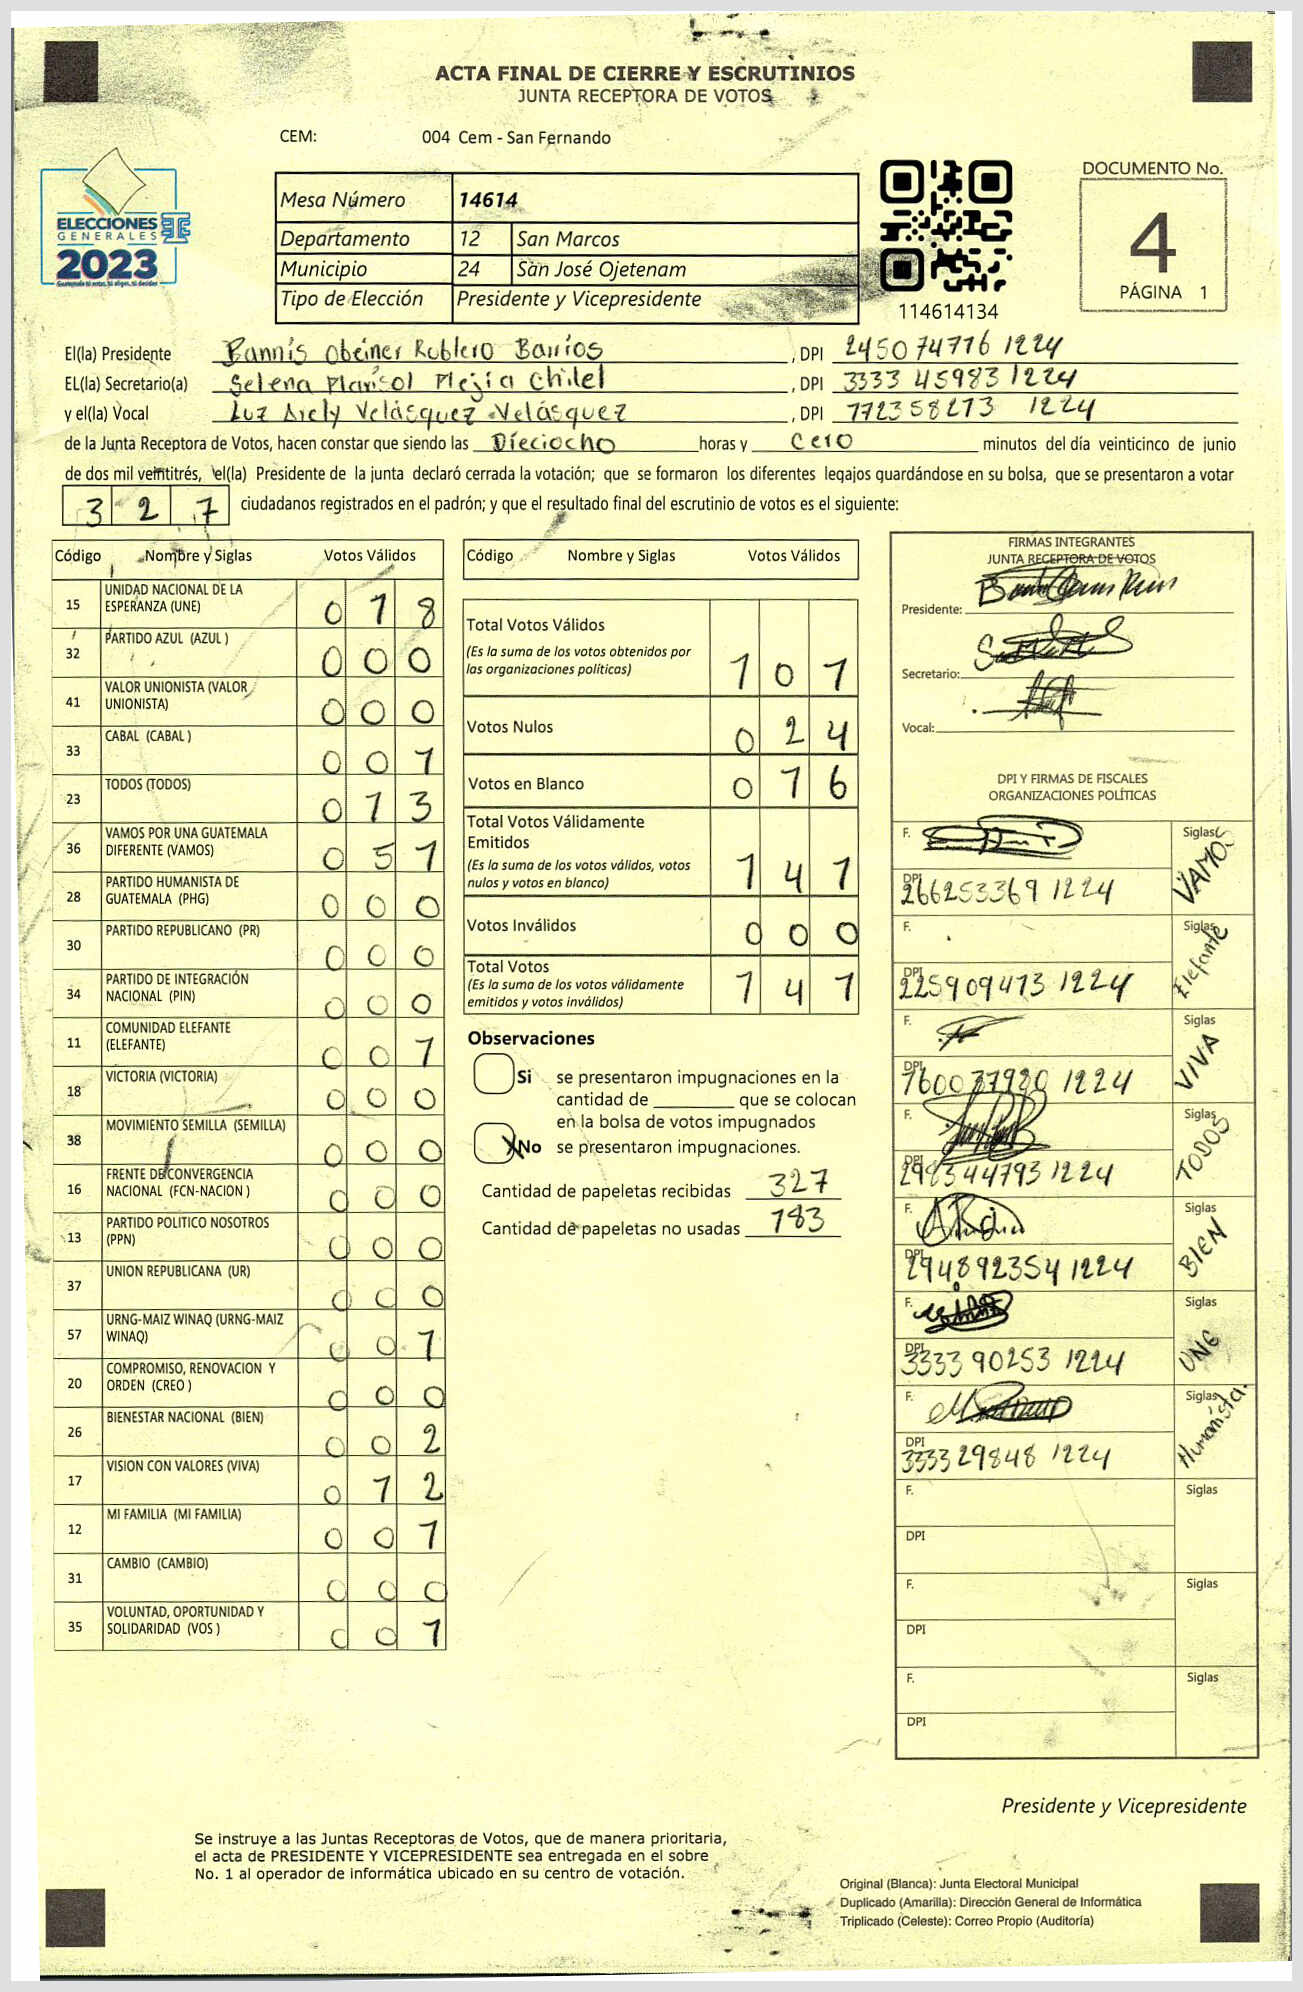 ACTA FINAL DE CIERRE Y ESCRUTINIOS
JUNTA RECEPTORA DE VOTOS
CEM: 004 Cem - San Fernando
ELECCIONES
GENERALES
2023
Mesa Número 14614
Departamento 12 San Marcos
Municipio 24 San José Ojetenam
Tipo de Elección Presidente y Vicepresidente
114614134
DOCUMENTO No.
4
PÁGINA 1
El(la) Presidente Bannis Obeiner Roblero Barrios , DPI 2450 74776 1224
EL(la) Secretario(a) Selena Marisol Mejia Chilel , DPI 3333 45983 1224
y el(la) Vocal Luz Diely Velásquez Velásquez , DPI 7723 58273 1224
de la Junta Receptora de Votos, hacen constar que siendo las Dieciocho horas y cero minutos del día veinticinco de junio
de dos mil veintitrés, el(la) Presidente de la junta declaró cerrada la votación; que se formaron los diferentes legajos guardándose en su bolsa, que se presentaron a votar
3 2 7 ciudadanos registrados en el padrón; y que el resultado final del escrutinio de votos es el siguiente:
Código Nombre y Siglas Votos Válidos
15 UNIDAD NACIONAL DE LA ESPERANZA (UNE) 0 1 8
32 PARTIDO AZUL (AZUL ) 0 0 0
41 VALOR UNIONISTA (VALOR UNIONISTA) 0 0 0
33 CABAL (CABAL ) 0 0 1
23 TODOS (TODOS) 0 1 3
36 VAMOS POR UNA GUATEMALA DIFERENTE (VAMOS) 0 5 1
28 PARTIDO HUMANISTA DE GUATEMALA (PHG) 0 0 0
30 PARTIDO REPUBLICANO (PR) 0 0 0
34 PARTIDO DE INTEGRACIÓN NACIONAL (PIN) 0 0 0
11 COMUNIDAD ELEFANTE (ELEFANTE) 0 0 1
18 VICTORIA (VICTORIA) 0 0 0
38 MOVIMIENTO SEMILLA (SEMILLA) 0 0 0
16 FRENTE DE CONVERGENCIA NACIONAL (FCN-NACION ) 0 0 0
13 PARTIDO POLITICO NOSOTROS (PPN) 0 0 0
37 UNION REPUBLICANA (UR) 0 0 0
57 URNG-MAIZ WINAQ (URNG-MAIZ WINAQ) 0 0 1
20 COMPROMISO, RENOVACION Y ORDEN (CREO ) 0 0 0
26 BIENESTAR NACIONAL (BIEN) 0 0 2
17 VISION CON VALORES (VIVA) 0 1 2
12 MI FAMILIA (MI FAMILIA) 0 0 1
31 CAMBIO (CAMBIO) 0 0 0
35 VOLUNTAD, OPORTUNIDAD Y SOLIDARIDAD (VOS ) 0 0 1
Código Nombre y Siglas Votos Válidos
Total Votos Válidos 1 0 1
(Es la suma de los votos obtenidos por
las organizaciones políticas)
Votos Nulos 0 2 4
Votos en Blanco 0 1 6
Total Votos Válidamente
Emitidos 1 4 1
(Es la suma de los votos válidos, votos
nulos y votos en blanco)
Votos Inválidos 0 0 0
Total Votos 1 4 1
(Es la suma de los votos válidamente
emitidos y votos inválidos)
Observaciones
Si se presentaron impugnaciones en la
cantidad de ________ que se colocan
en la bolsa de votos impugnados
X No se presentaron impugnaciones.
Cantidad de papeletas recibidas 327
Cantidad de papeletas no usadas 183
FIRMAS INTEGRANTES
JUNTA RECEPTORA DE VOTOS
Presidente:
Secretario:
Vocal:
DPI Y FIRMAS DE FISCALES
ORGANIZACIONES POLÍTICAS
F. Siglas VAMOS
DPI 2662 53369 1224
F. Siglas Elefante
DPI 2259 09473 1224
F. Siglas VIVA
DPI 7600 37920 1224
F. Siglas TODOS
DPI 2983 44793 1224
F. Siglas BIEN
DPI 2948 92354 1224
F. Siglas UNE
DPI 3333 90253 1224
F. Siglas Humanista.
DPI 3333 29848 1224
F. Siglas
DPI
F. Siglas
DPI
F. Siglas
DPI
Presidente y Vicepresidente
Se instruye a las Juntas Receptoras de Votos, que de manera prioritaria,
el acta de PRESIDENTE Y VICEPRESIDENTE sea entregada en el sobre
No. 1 al operador de informática ubicado en su centro de votación.
Original (Blanca): Junta Electoral Municipal
Duplicado (Amarilla): Dirección General de Informática
Triplicado (Celeste): Correo Propio (Auditoría)